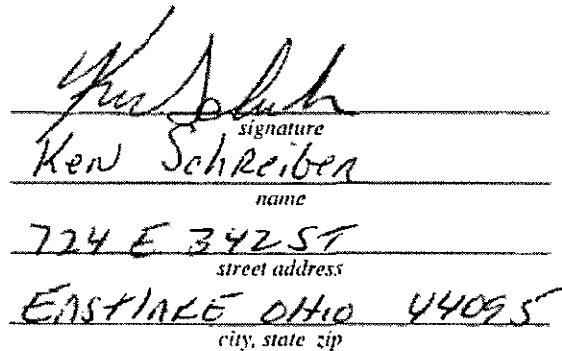 Ken Schreiber
signature
Ken Schreiber
name
724 E 342 ST
street address
EASTLAKE OHIO 44095
city, state zip